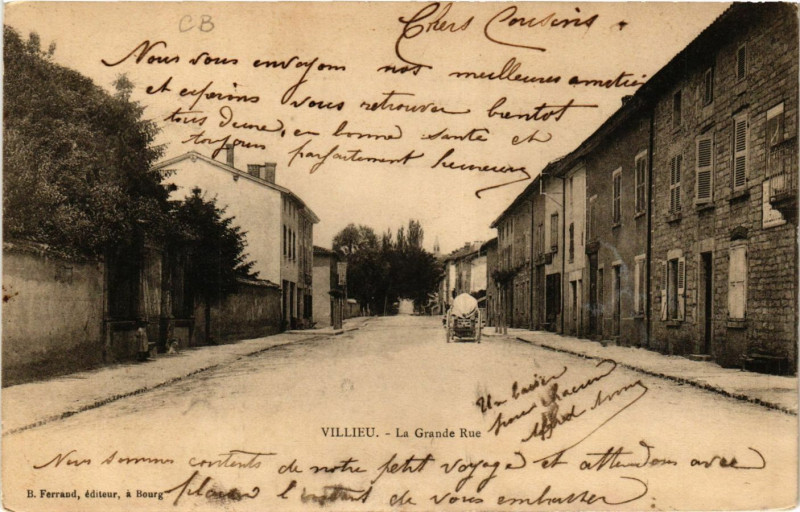 CB
Chers Cousins
Nous vous envoyons nos meilleures amitiés
et espérons vous retrouver bientot
tous deux, en bonne santé et
toujours parfaitement heureux
Un baiser
pour chacun
Alfred
VILLIEU. - La Grande Rue
Nous sommes contents de notre petit voyage et attendons avec
B. Ferrand, éditeur, à Bourg
plaisir l'instant de vous embrasser